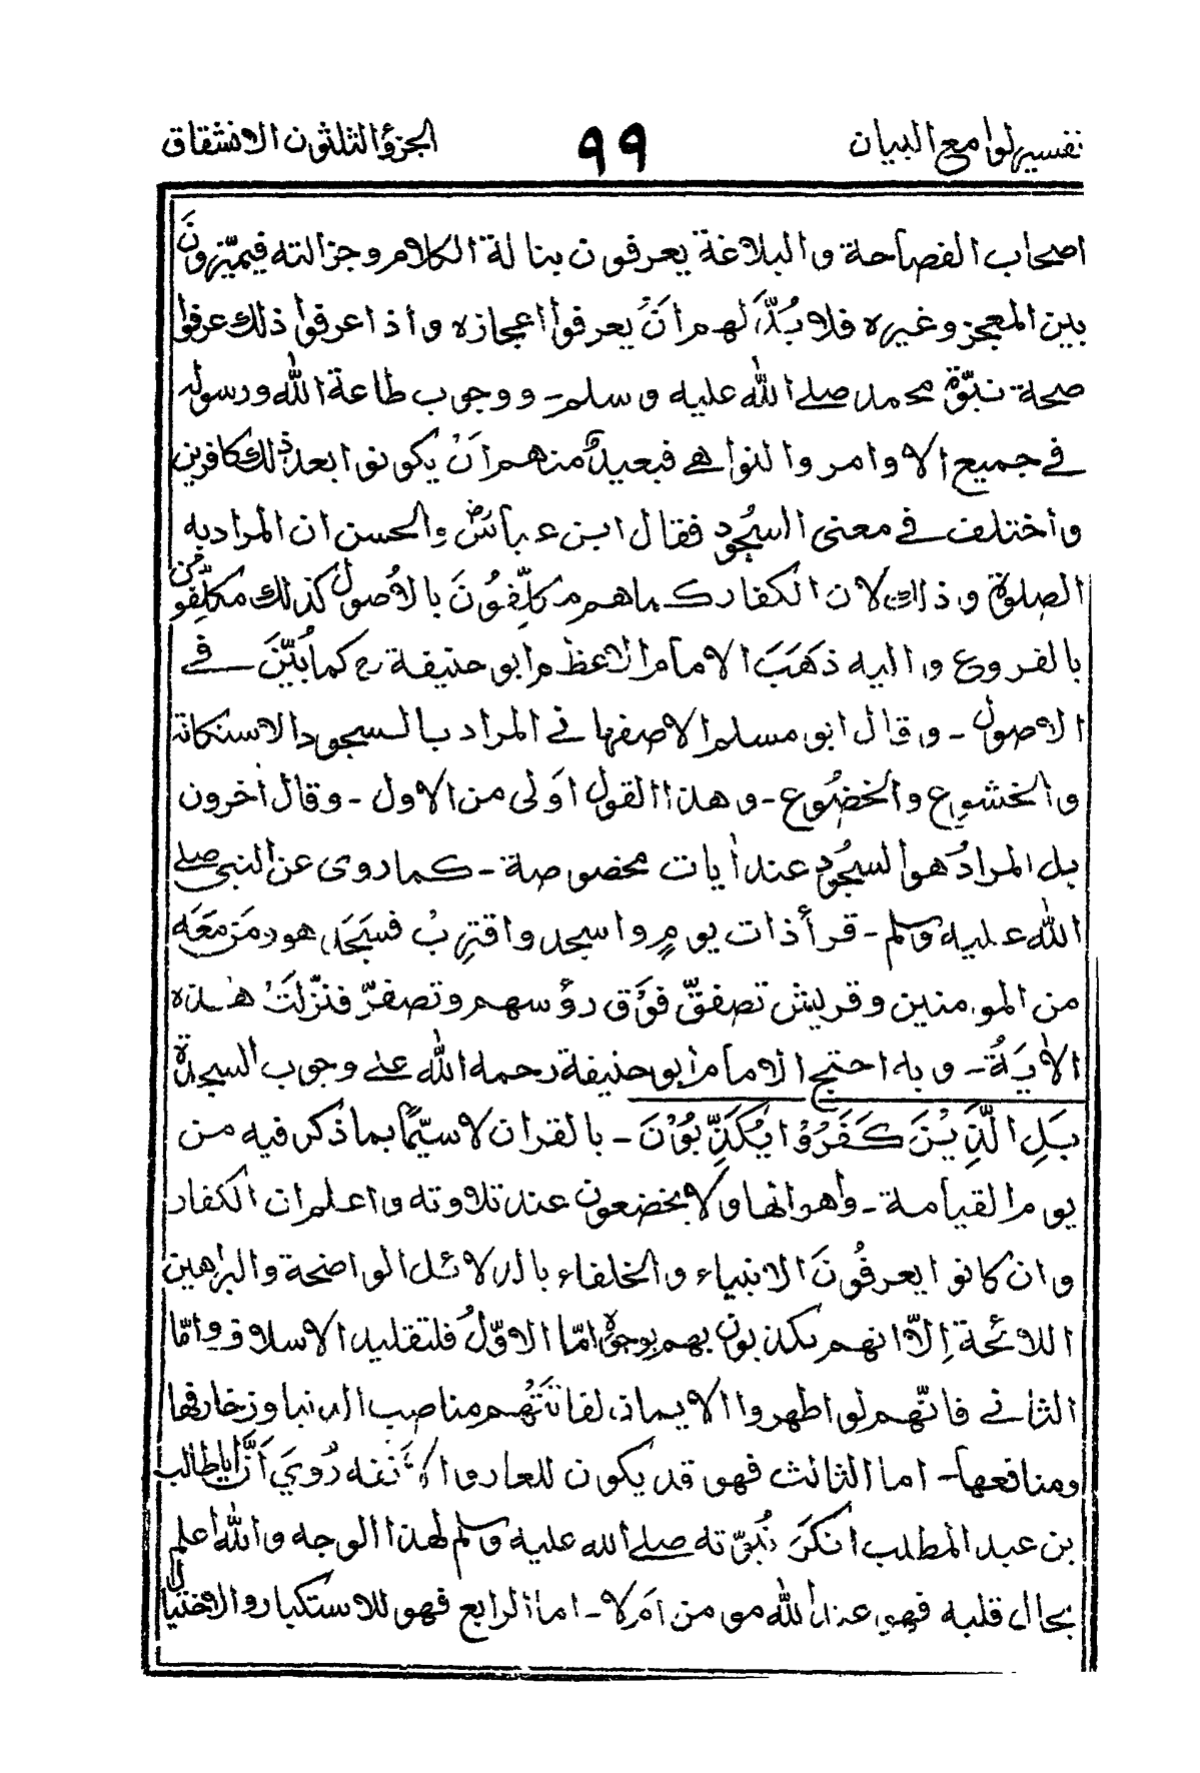 تفسير لوامع البيان ٩٩ الجزؤ الثلثون الانشقاق
اصحاب الفصاحة والبلاغة يعرفون بنالة الكلام وجزالته فيميّزونَ
بين المعجز وغيره فلا بُدَّ لهم اَنْ يعرفوا اعجازه واذا عرفوا ذلك عرفوا
صحة نبّوة محمد صلے الله عليه وسلم - ووجوب طاعة الله ورسوله
فے جميع الاوامر والنواهے فبعيدٌ منهم اَنْ يكونوا بعد ذلك كافرين
واختلف فے معنى السُجُود فقال ابن عباسؓ والحسن ان المراد به
الصلوٰة وذلك لان الكفار كما هم مكلِّفُونَ بالاُصول كذلك مكلّفون
بالفروع واليه ذهَبَ الامام الاعظم ابو حنيفة رح كما بُيّنَ فے
الاصول - وقال ابو مسلم الاصفهانے المراد بالسجود الاستكانة
والخشوع والخضُوع - وهذا القول اَولى من الاول - وقال اٰخرون
بل المرادُ هو السُجُود عند اٰيات مخصوصة - كما روى عن النبى صلے
الله عليه وسلم - قرأ ذات يومٍ واسجد واقترِبْ فسَجَدَ هو ومَن معَه
من المومنين وقريش تصفقّ فوَق رؤسهم وتصفرّ فنزّلتْ هٰذه
الاٰيَةُ - وبه احتج الامام ابو حنيفة رحمه الله علے وجوب السجدة
بَلِ الَّذِيْنَ كَفَرُوْا يُكَذِّبُوْنَ - بالقران لاسيّما بما ذكر فيه من
يوم القيامة - واهوالها ولا يخضعون عند تلاوته واعلم ان الكفار
وان كانوا يعرفُونَ الانبياء والخلفاء بالدلائل الواضحة والبراهين
اللائحة اِلاّ انهم يكذبون بهم بوجوهٍ امّا الاوّلُ فلتقليد الاسلاف وامّا
الثانے فانّهم لو اظهروا الايمان لفاتَتْهُم مناصب الدنيا وزخارفها
ومنافعها - اما الثالث فهو قد يكون للعار والاَنَفه رُوِيَ اَنَّ اباطالب
بن عبد المطلب انكَرَ نُبوّته صلے الله عليه وسلم لهذا الوجه والله اعلم
بحال قلبه فهو عند الله مومن اَم لا - اما الرابع فهو للاستكبار والاختيال